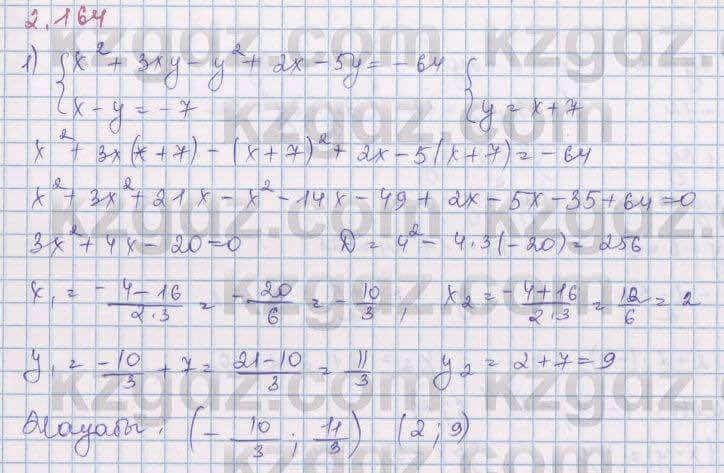 2.164
1) { x² + 3xy - y² + 2x - 5y = -64 {
x - y = -7 y = x + 7
x² + 3x(x + 7) - (x + 7)² + 2x - 5(x + 7) = -64
x² + 3x² + 21x - x² - 14x - 49 + 2x - 5x - 35 + 64 = 0
3x² + 4x - 20 = 0 D = 4² - 4·3(-20) = 256
x₁ = (-4 - 16)/(2·3) = -20/6 = -10/3 ; x₂ = (-4 + 16)/(2·3) = 12/6 = 2
y₁ = -10/3 + 7 = (21 - 10)/3 = 11/3 y₂ = 2 + 7 = 9
Жауабы: (-10/3 ; 11/3) (2 ; 9)
kzgdz.com